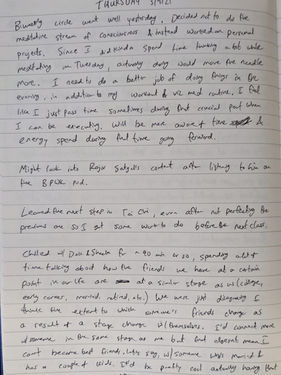 THURSDAY
Biweekly circle went well yesterday, decided not to do the
meditative stream of consciousness & instead worked on personal
projects. Since I did kinda spend time thinking a bit while
meditating on Tuesday, actually doing would move the needle
more. I need to do a better job of doing things in the
evening, in addition to my workout & med routine, I feel
like I just pass time sometimes during that crucial part when
I can be executing. Will be more aware of time &
energy spend during that time going forward.
Might look into content after listening to him on
the pod.
Learned the next step in Tai Chi, even after not perfecting the
previous one so I got some work to do before the next class.
Chilled w/ & for ~90 min or so, spending a lot of
time talking about how the friends we have at a certain
point in our life are at a similar stage as us (college,
early career, married, retired, etc.) We were just disagreeing I
think the extent to which someone's friends change as
a result of a stage change w/ themselves. I'd connect more
w/ someone in the same stage as me but that doesn't mean I
can't become best friends, let's say, w/ someone who's married &
has a couple of kids. It'd be pretty cool actually having that